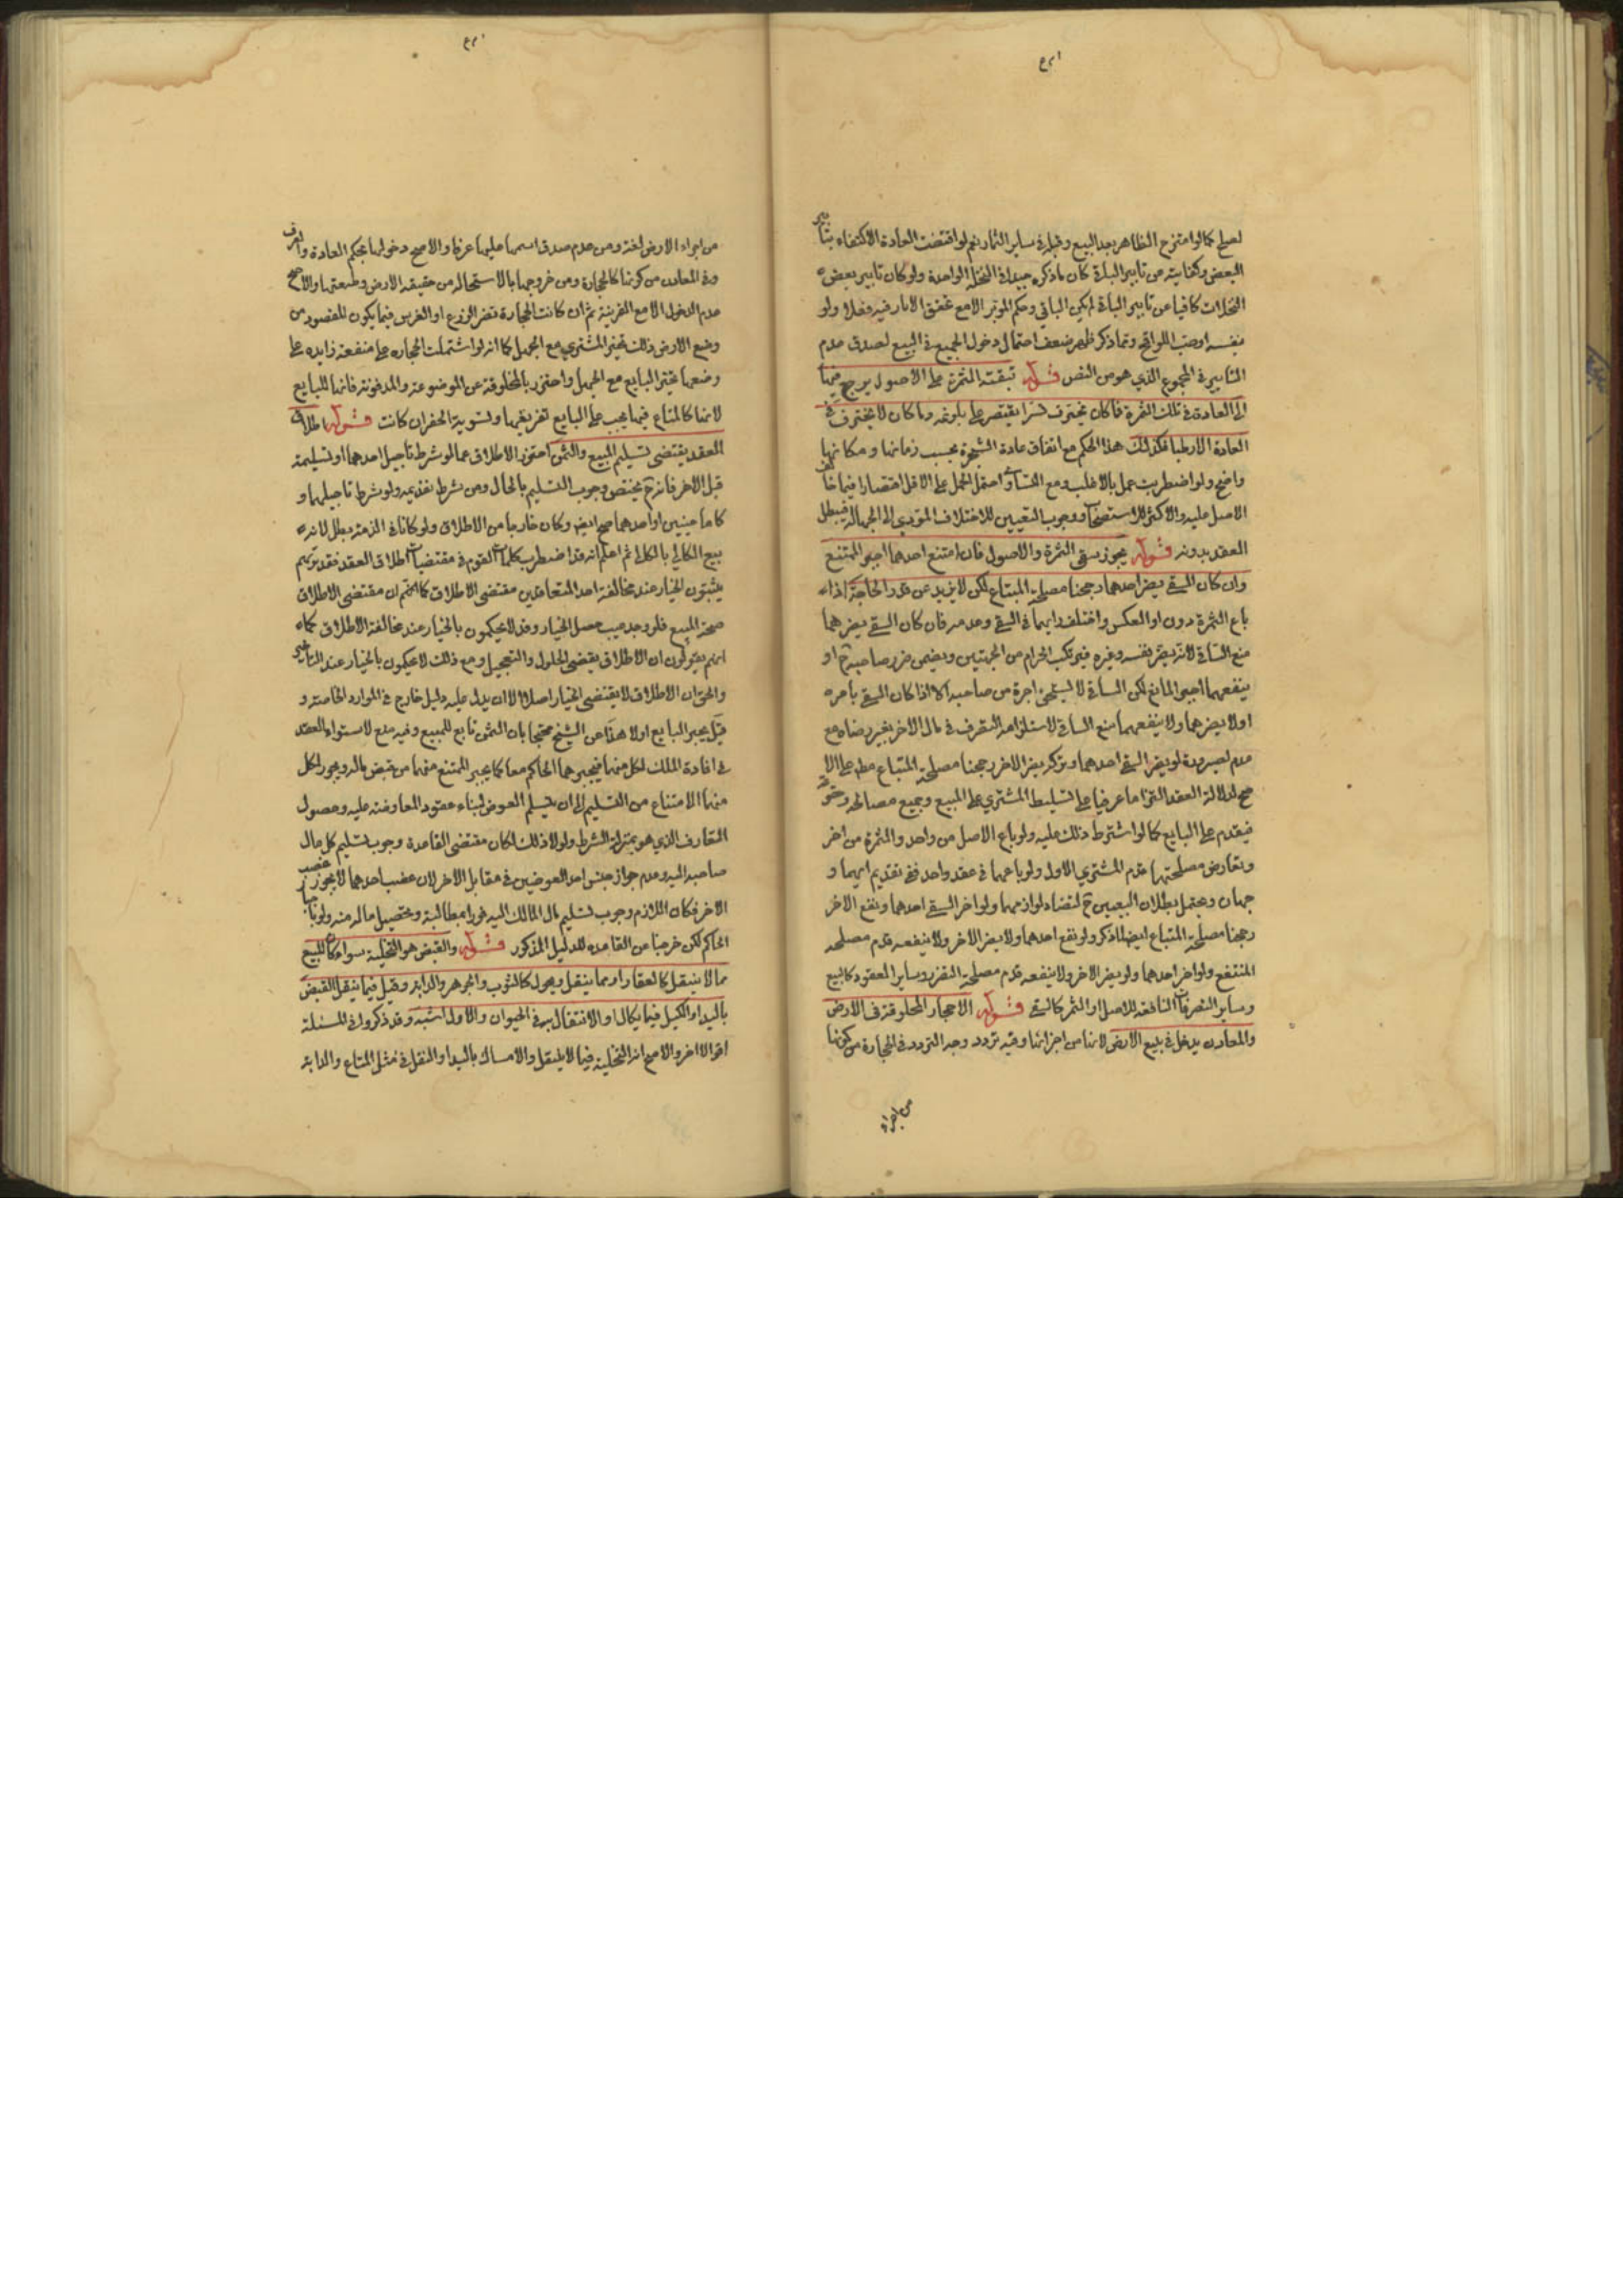 لصلح كما لو امتزج الظاهر بعد البيع وقبله في ساير الثمار نعم لو اقتضت العادة الاكتفاء بتأبير
البعض وكفايته من تأبير الباقي كان ما ذكره جيدا في النخلة الواحدة ولو كان تأبير بعض
النخلات كافيا عن تأبير الباقي لم يكن الباقي وحكم المؤبر الا مع تحقق الابار فيه فعلا ولو
بنفسه او صب اللواقح ومما ذكر ظهر ضعف احتمال دخول الجميع في البيع لصدق عدم
التأبير في المجموع الذي هو من النص قوله تبقية الثمرة على الاصول يرجع فيها
الى العادة في تلك الثمرة فما كان يخترف بسرا يقتصر على بلوغه وما كان لا يخترف في
العادة الا رطبا فكذلك هذا الحكم مع اتفاق عادة الشجرة بحسب زمانها ومكانها
واضح ولو اضطربت عمل بالاغلب ومع التساوي احتمل الحمل على الاقل اقتصارا فيما خالف
الاصل عليه والاكثر للاستصحاب ووجوب التعيين للاختلاف المؤدي الى الجهالة فيبطل
العقد بدونه قوله يجوز سقي الثمرة والاصول فان امتنع احدهما اجبر الممتنع
وان كان السقي يضر احدهما رجحنا مصلحة المبتاع لكن لا يزيد عن قدر الحاجة اذا
باع الثمرة دون او العكس واختلف رايهما في السقي وعدمه فان كان السقي يضرهما
منع الساقي لانه يضر بنفسه وغيره فيرتكب الحرام من الجهتين ويضمن ضرر صاحبه ح او
ينفعهما اجبر المانع لكن الساقي لا يستحق اجرة من صاحبه الا اذا كان السقي بامره
او لا يضرهما ولا ينفعهما منع الساقي لاستلزامه التصرف في مال الاخر بغير رضاه مع
عدم لو يضر السقي احدهما وتركه يضر الاخر رجحنا مصلحة المبتاع مطم على الا
صح لدلالة العقد التزاما عرفيا على تسليط المشتري على المبيع وجميع مصالحه وحقوقه
فيقدم على البايع كما لو اشترط ذلك عليه ولو باع الاصل من واحد والثمرة من اخر
وتعارض مصلحتهما قدم المشتري الاول ولو باعهما في عقد واحد ففي تقديم ايهما و
جهان ويحتمل بطلان البيعين ح لتضاد لوازمهما ولو اضر السقي احدهما ونفع الاخر
رجحنا مصلحة المبتاع ايضا لما ذكر ولو نفع احدهما ولا يضر الاخر ولا ينفعه قدم مصلحة
المنتفع ولو اضر احدهما ولو يضر الاخر ولا ينفعه قدم مصلحة المتضرر وساير العقود كالبيع
وساير التصرفات النافعة للاصل او الثمر كالسقي قوله الاحجار المخلوقة في الارض
والمعادن يدخل في بيع الارض لانها من اجزائها وفيه تردد وجه التردد في الحجارة من كونها
من اجزاء
من اجزاء الارض لغة ومن عدم صدق اسمها عليها عرفا والاصح دخولها بحكم العادة والعرف
وفي المعادن من كونها كالحجارة ومن خروجها بالاستحالة من حقيقة الارض وطبيعتها والاصح
عدم الدخول الا مع القرينة ثم ان كانت الحجارة تضر الزرع او الغرس فيما يكون المقصود من
وضع الارض ذلك تخير المشتري مع الجهل كما انه لو اشتملت الحجارة على منفعة زايدة على
وضعها تخير البايع مع الجهل واحترز بالمخلوقة عن الموضوعة والمدفونة فانها للبايع
لانها كالمتاع فيها يجب على البايع تفريغها وتسوية الحفر ان كانت قوله اطلاق
العقد يقتضي تسليم المبيع والثمن احترز الاطلاق عما لو شرط تأجيل احدهما او تسليمه
قبل الاخر فانه ح يختص وجوب التسليم بالحال ومن شرط تقديمه ولو شرط تأجيلهما و
كانا عينين او احدهما صح ايضا وكان خارجا من الاطلاق ولو كانا في الذمة بطل لانه
بيع الكالي بالكالي ثم اعلم انه قد اضطرب كلمات القوم في مقتضيات اطلاق العقد فقد تريهم
يثبتون الخيار عند مخالفة احد المتعاقدين مقتضى الاطلاق كما انهم ان مقتضى الاطلاق
صحة المبيع فلو وجد معيب حصل الخيار وقد لا يحكمون بالخيار عند مخالفة الاطلاق كما
انهم يقولون ان الاطلاق يقتضي الحلول والتعجيل ومع ذلك لا يحكمون بالخيار عند التأخير
والحق ان الاطلاق لا يقتضي الخيار اصلا الا ان يدل عليه دليل خارج في الموارد الخاصة و
قيل يجبر البايع اولا هذا عن الشيخ محتجا بان الثمن تابع للمبيع وفيه منع لاستواء العقد
في افادة الملك لكل منهما فيجبرهما الحاكم معا كما يجبر الممتنع منهما من قبض ماله ويجوز لكل
منهما الامتناع من التسليم الى ان يتسلم العوض لبناء عقود المعاوضة عليه وحصول
التعارف الذي هو بمنزلة الشرط ولولا ذلك لكان مقتضى القاعدة وجوب تسليم كل مال
صاحبه اليه وعدم جواز حبس احد العوضين في مقابل الاخر لان غصب احدهما لا يجوز غصب
الاخر فكان اللازم وجوب تسليم مال المالك اليه فورا بمطالبته وتحصيل ماله منه ولو باجبار
الحاكم لكن خرجنا من القاعدة للدليل المذكور قوله والقبض هو التخلية سواء كان المبيع
مما لا ينقل كالعقار او مما ينقل ويحول كالثوب والجوهر والدابة وقيل فيما ينقل القبض
باليد او الكيل فيما يكال او الانتقال به في الحيوان والاول اشبه وقد ذكروا في المسئلة
اقوالا اخر والاصح انه التخلية فيما لا ينقل والامساك باليد او النقل في مثل المتاع والدابة